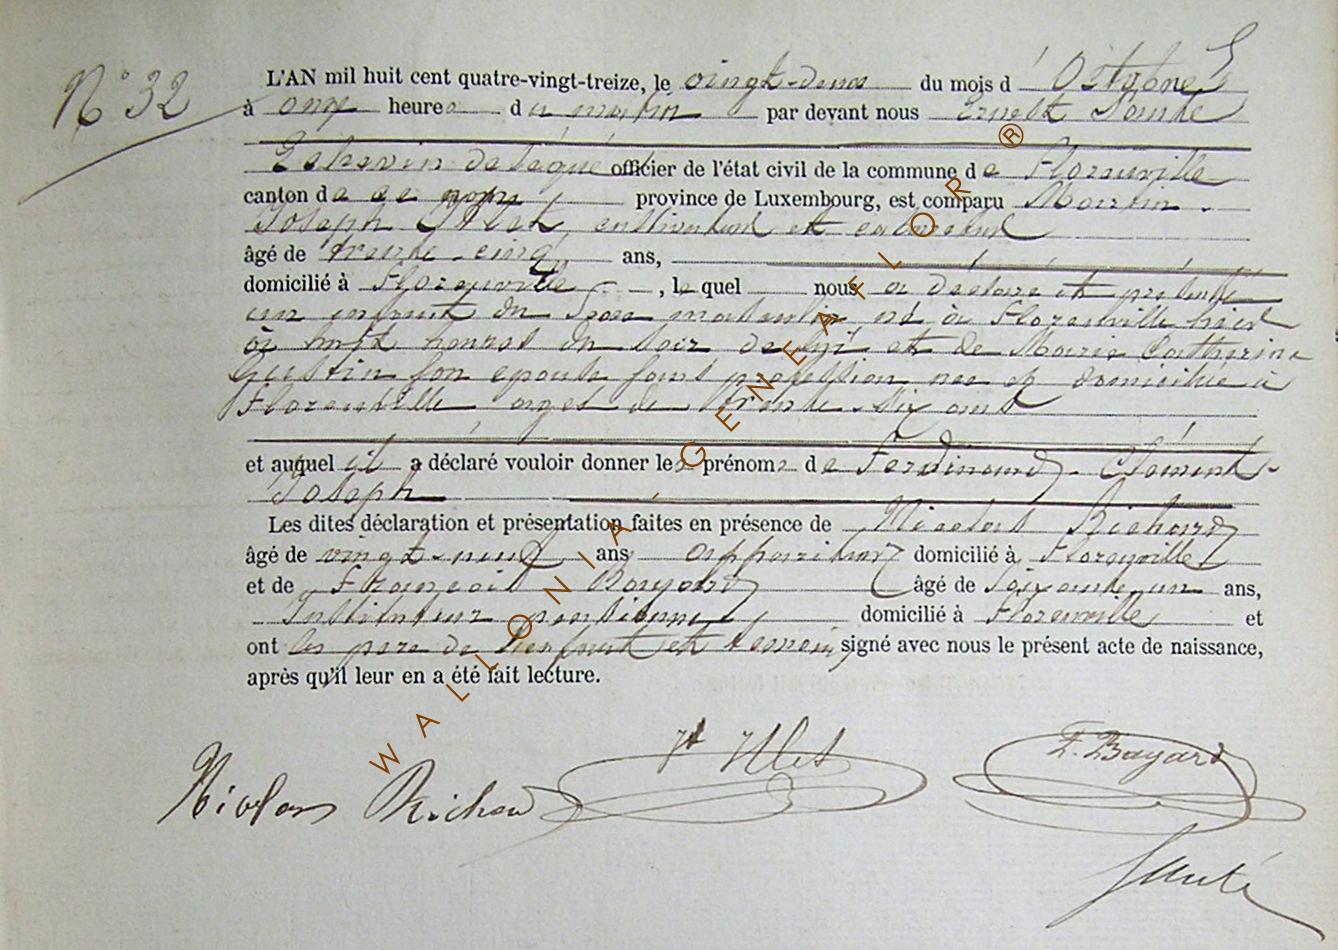 N° 32
L'AN mil huit cent quatre-vingt-treize, le vingt-deux du mois d' Octobre
à onze heures du matin par devant nous Ernest
Echevin délégué officier de l'état civil de la commune de Florenville
canton de ce nom, province de Luxembourg, est comparu Martin
Joseph cultivateur et
âgé de trente-cinq ans,
domicilié à Florenville, lequel nous a déclaré et présenté
un enfant du sexe masculin né à Florenville hier
à huit heures du soir de lui et de Marie Catherine
Gustin son épouse sans profession née et domiciliée à
Florenville agée de trente-six ans
et auquel il a déclaré vouloir donner les prénoms de Ferdinand Clément
Joseph
Les dites déclaration et présentation faites en présence de Nicolas Richard
âgé de vingt-neuf ans appariteur domicilié à Florenville
et de François Bayard âgé de soixante-un ans,
Instituteur pensionné, domicilié à Florenville et
ont les père de l'enfant et témoins signé avec nous le présent acte de naissance,
après qu'il leur en a été fait lecture.
Nicolas Richard
F. Bayard
WALLONIA - GENEAFLOR ®